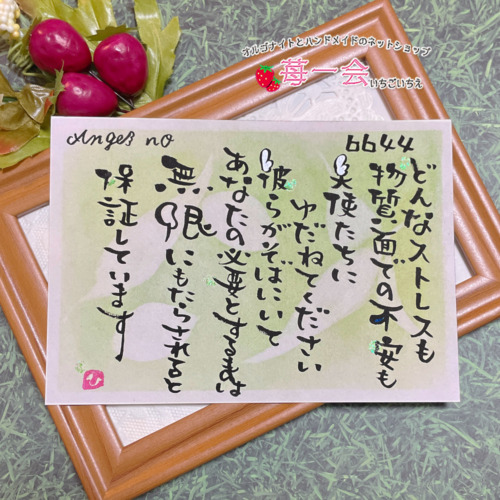 オルゴナイトとハンドメイドのネットショップ
苺一会
いちごいちえ
Angel no
6644
どんなストレスも
物質面での不安も
天使たちに
ゆだねてください
彼らがそばにいて
あなたの必要とする事は
無限にもたらされると
保証しています
ひ